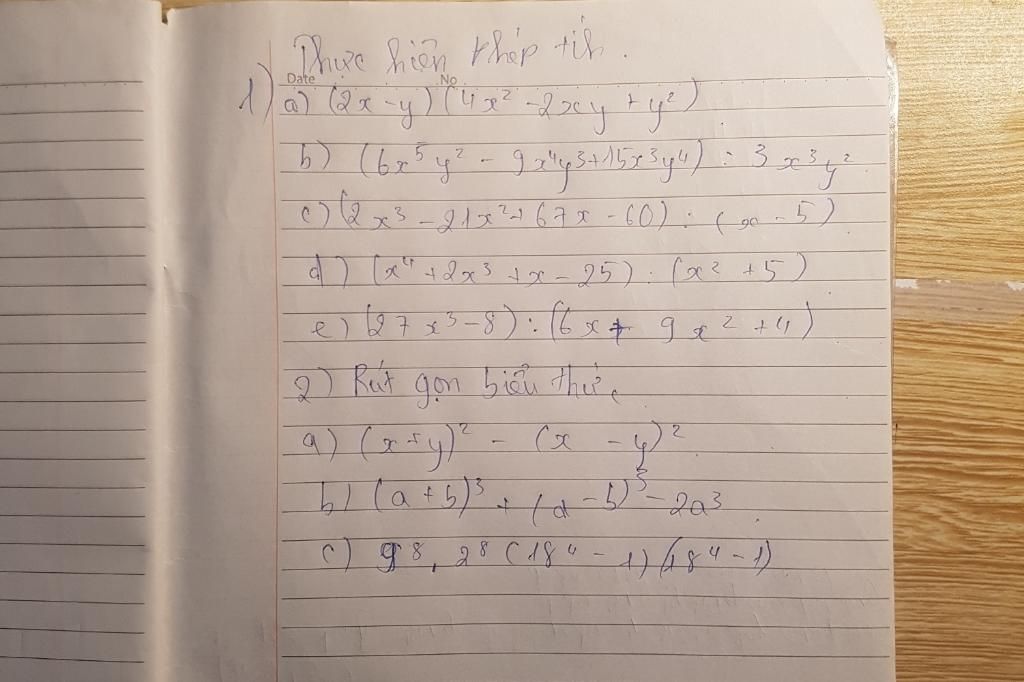 Thực hiện phép tih.
Date No
1) a) (2x - y) (4x² - 2xy + y²)
b) (6x⁵y² - 9x⁴y³ + 15x³y⁴) : 3x³y²
c) (2x³ - 21x² + 67x - 60) : (x - 5)
d) (x⁴ + 2x³ + x - 25) : (x² + 5)
e) (27x³ - 8) : (6x + 9x² + 4)
2) Rút gọn biểu thức
a) (x + y)² - (x - y)²
b) (a + b)³ + (a - b)³ - 2a³
c) 9⁸ . 2⁸ (18⁴ - 1) (18⁴ - 1)